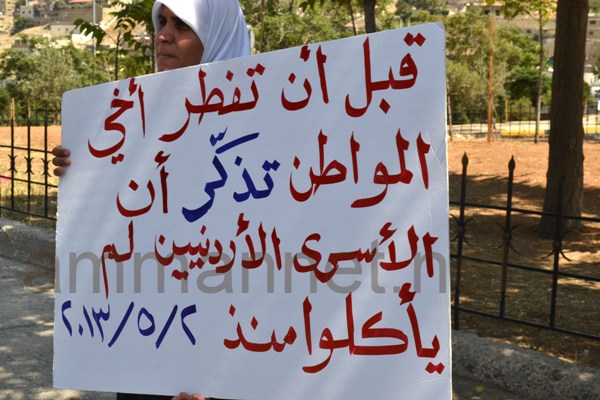 قبل أن تفطر أخي
المواطن تذكّر أن
الأسرى الأردنيين لم
يأكلوا منذ ٢/٥/٢٠١٣
ammannet.n